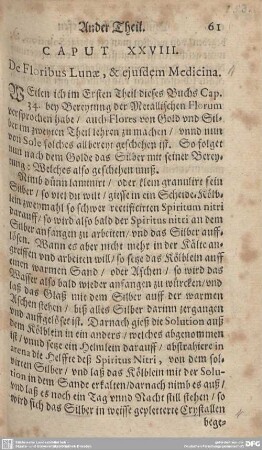 Ander Theil. 61
CAPUT XXVIII.
De Floribus Lunæ, & ejusdem Medicina.
WEilen ich im Ersten Theil dieses Buchs Cap.
34. bey Bereytung der Metallischen Florum
versprochen habe / auch Flores von Gold und Sil-
ber im zweyten Theil lehren zu machen / unnd nun
von Sole solches allbereyt geschehen ist. So folget
nun nach dem Golde das Silber mit seiner Berey-
tung: Welches also geschehen muß.
Nimb dünn laminirt / oder klein granulirt fein
Silber / so viel du wilt / giesse in ein Scheide-Kölb-
lein zweymahl so schwer rectificirten Spiritum nitri
darauff / so wird also bald der Spiritus nitri an dem
Silber anfangen zu arbeiten / und das Silber auff-
lösen. Wann es aber nicht mehr in der Kälte an-
greiffen und arbeiten will / so setze das Kölblein auff
einen warmen Sand / oder Aschen / so wird das
Wasser also bald wieder anfangen zu würcken / und
laß das Glaß mit dem Silber auff der warmen
Aschen stehen / biß alles Silber darinn zergangen
und auffgelöset ist. Darnach gieß die Solution auß
dem Kölblein in ein anders / welches abgenommen
ist / unnd setze ein Helmlein darauff / abstrahire in
arena die Helffte deß Spiritus Nitri, von dem sol-
virten Silber / und laß das Kölblein mit der Solu-
tion in dem Sande erkalten / darnach nimb es auß /
und laß es noch ein Tag unnd Nacht still stehen / so
wird sich das Silber in weisse gepletterte Crystallen
bege-